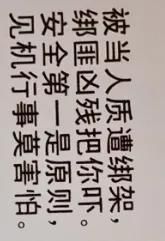 被当人质遭绑架，
绑匪凶残把你吓。
安全第一是原则，
见机行事莫害怕。